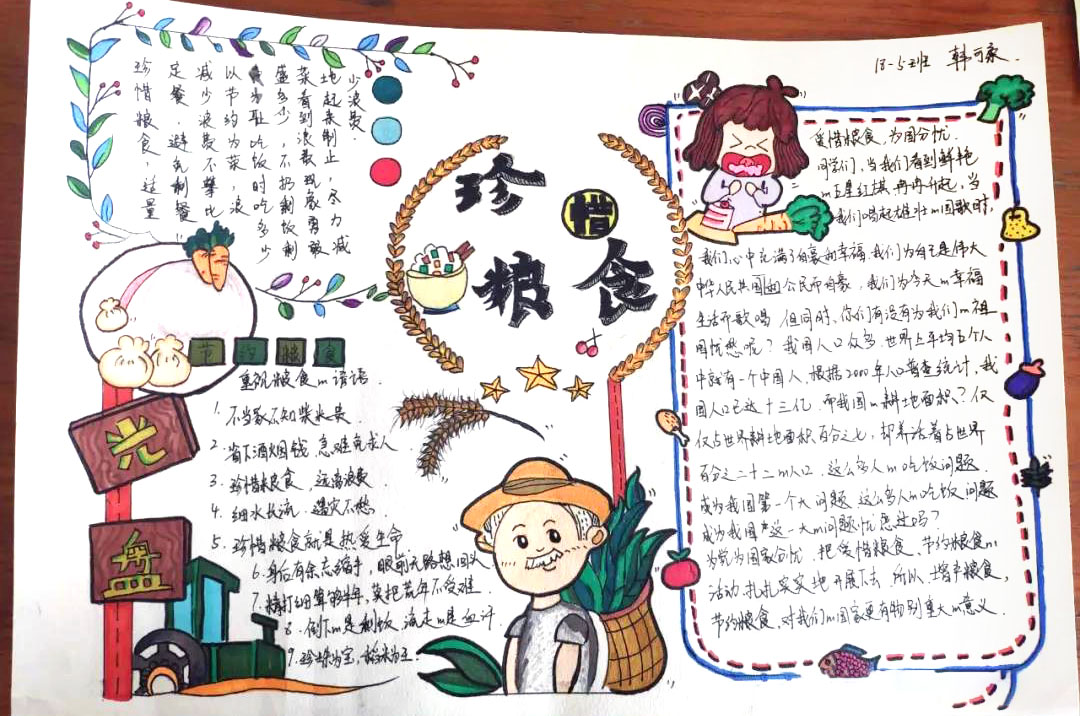 珍惜粮食,适量
定餐、避免剩餐
减少浪费不攀比
以节约为菜,浪
为耻吃饭时吃多少
盛多少,不扔剩饭剩
菜看到浪费现象勇敢
地起来制止,尽力减
少浪费.
18-5班
珍惜粮食
节约粮食
光盘
重视粮食的谚语.
1. 不当家不知柴米贵
2. 省下酒烟钱,急难免求人
3. 珍惜粮食,远离浪费
4. 细水长流.遇灾不愁
5. 珍惜粮食就是热爱生命
6. 身后有余忘缩手,眼前无路想回头
7. 精打细算够半年,英把荒年不受难.
8. 倒下的是剩饭 流走的是血汗.
9. 珍珠为宝,稻米为王.
爱惜粮食,为国分忧.
同学们,当我们看到鲜艳
的五星红旗冉冉升起,当
我们唱起雄壮的国歌时,
我们心中充满了自豪和幸福.我们为自己是伟大
中华人民共和国公民而自豪,我们为今天的幸福
生活而歌唱 但同时,你们有没有为我们的祖
国忧愁呢?我国人口众多,世界上平均五个人
中就有一个中国人.根据2000年人口普查统计,我
国人口已达十三亿.而我国的耕地面积?仅
仅占世界耕地面积百分之七,却养活着占世界
百分之二十二的人口.这么多人的吃饭问题.
成为我国第一个大问题 这么多人的吃饭问题
成为我国这一大的问题忧愁过吗?
为国家分忧,把爱惜粮食、节约粮食的
活动.扎扎实实地开展下去.所以.增产粮食,
节约粮食,对我们的国家更有特别重大的意义.